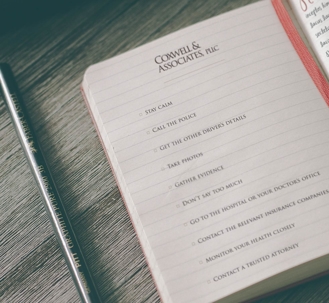 Coxwell &
Associates, PLLC
Stay calm
Call the police
Get the other drivers details
Take photos
Gather evidence
Don't say too much
Go to the hospital or your doctors office
Contact the relevant insurance companies
Monitor your health closely
Contact a trusted attorney